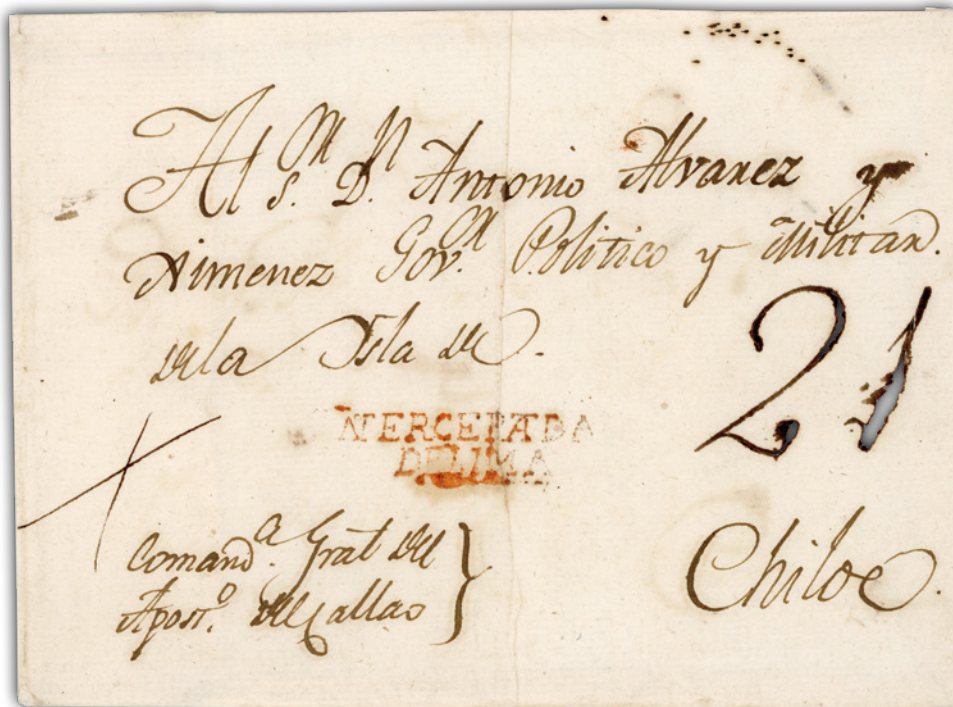 Al S.ᵒʳ D.ⁿ Antonio Alvarez y
Ximenez Gov.ᵒʳ Politico y Militar.
dela Isla de
21
NTERCEPADA
DE LIMA
Comand.ᵃ Gral del
Apost.º del Callao
Chiloe.